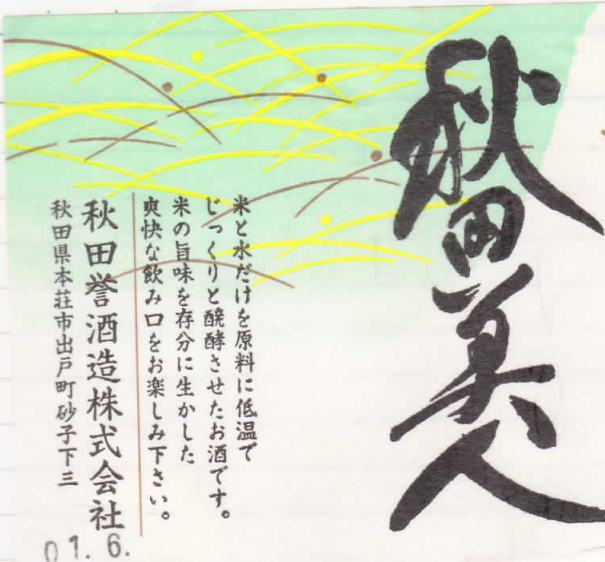 秋田美人
米と水だけを原料に低温で
じっくりと醗酵させたお酒です。
米の旨味を存分に生かした
爽快な飲み口をお楽しみ下さい。
秋田誉酒造株式会社
秋田県本荘市出戸町砂子下三
01.6.